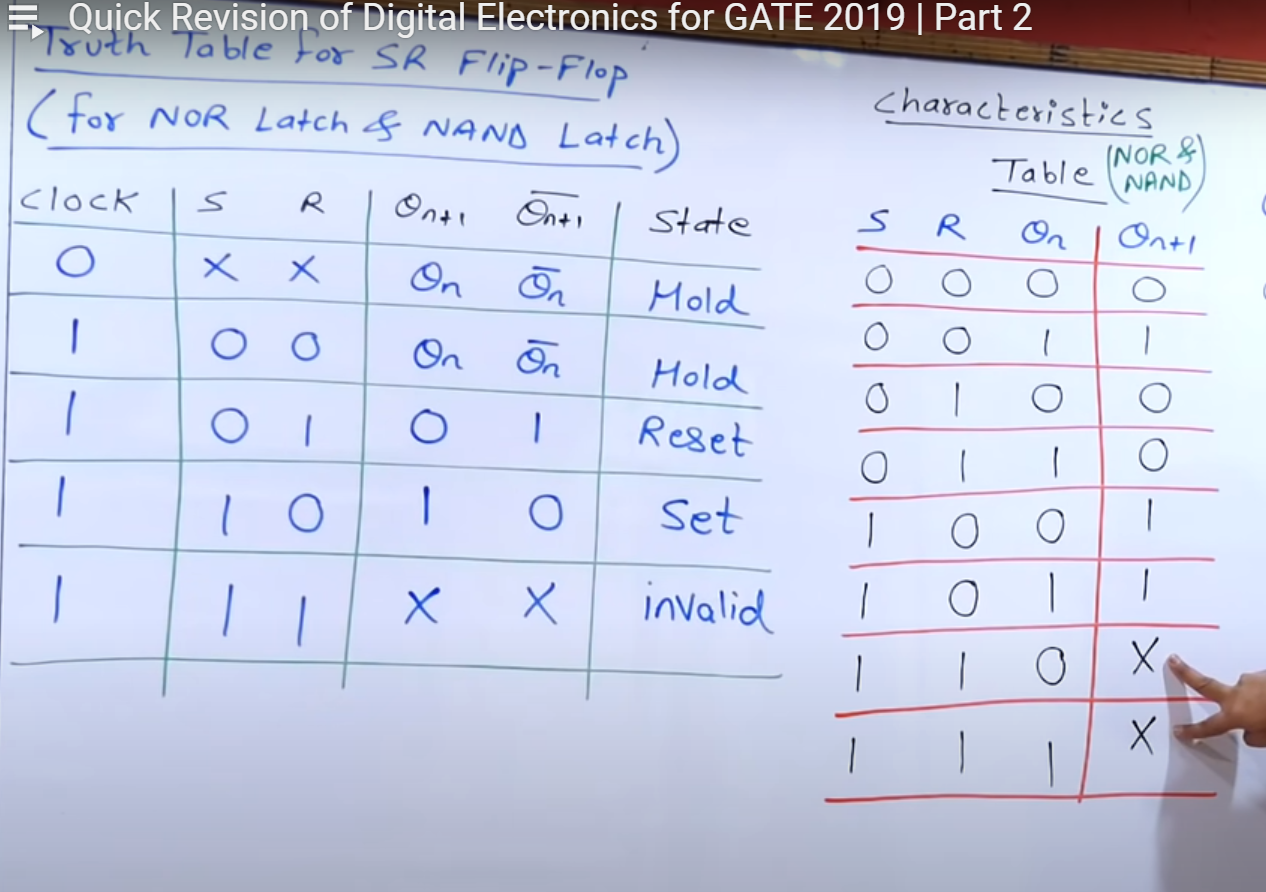 Quick Revision of Digital Electronics for GATE 2019 | Part 2
Truth Table for SR Flip-Flop
(for NOR Latch & NAND Latch)
Clock S R Qn+1 Q̅n+1 State
0 X X Qn Q̅n Hold
1 0 0 Qn Q̅n Hold
1 0 1 0 1 Reset
1 1 0 1 0 Set
1 1 1 X X invalid
Characteristics
Table (NOR &
NAND)
S R Qn Qn+1
0 0 0 0
0 0 1 1
0 1 0 0
0 1 1 0
1 0 0 1
1 0 1 1
1 1 0 X
1 1 1 X